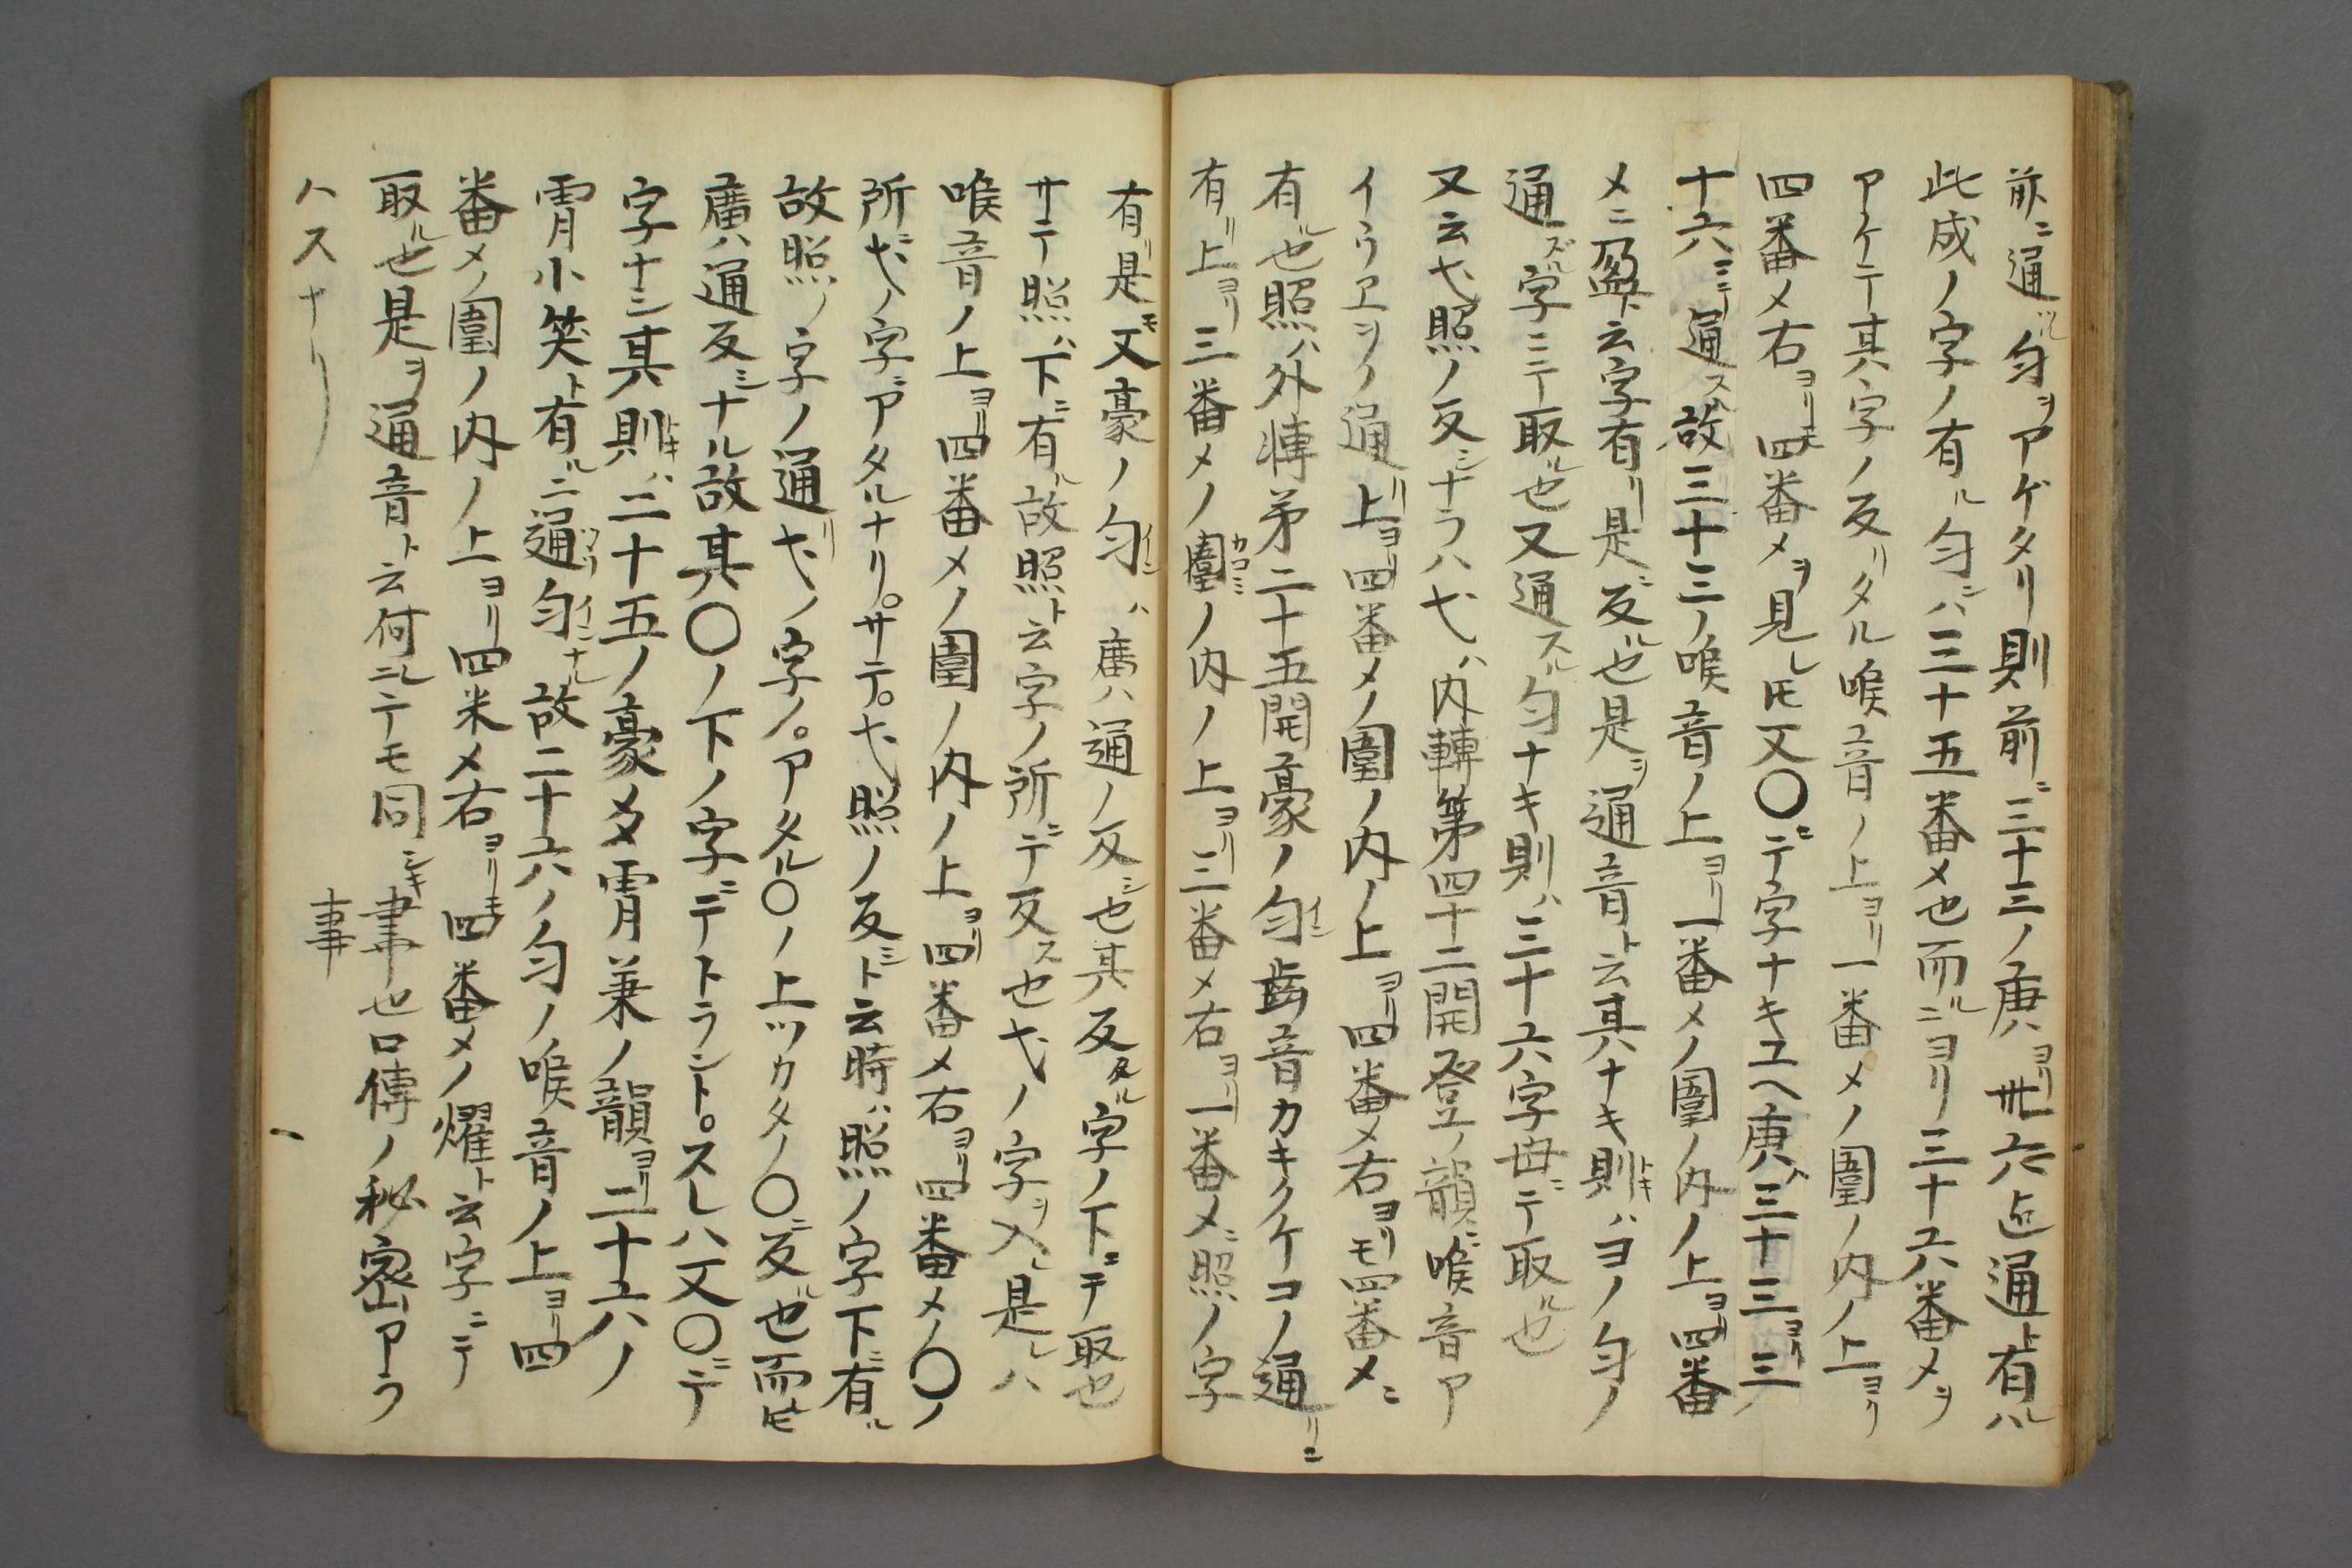 前ニ通ル匀ヲアゲタリ則前ニ三十三ノ庚ハヨリ卅六迄通ト有ルハ
此成ノ字ノ有ル匀ハ三十五番メ也而ルニヨリ三十六番メヲ
アケテ其字ノ反リタル喉音ノ上ヨリ一番メノ圍ノ内ノ上ヨリ
四番メ右ヨリモ四番メヲ見レ𪜈又〇ニテ字ナキユヘ庚ハ三十三ヨリ三
十六ニ通スル故三十三ノ喉音ノ上ヨリ一番メノ圍ノ内ノ上ヨリ四番
メニ盈ト云字有リ是ニ反ル也是ヲ通音ト云其ナキ則ハヨノ匀ノ
通ズル字ニテ取ル也又通スル匀ナキ則ハ三十六字母ニテ取ル也
又云弋照ノ反シナラハ弋ハ内轉第四十二開登ノ韻ニ喉音ア
イウヱヲノ通リ上ヨリ四番メノ圍ノ内ノ上ヨリ四番メ右ヨリモ四番メニ
有ル也照ハ外轉第二十五開豪ノ匀齒音カキクケコノ通リニ
有リ上ヨリ三番メノ圍ノ内ノ上ヨリ三番メ右ヨリ一番メニ照ノ字
有リ是モ又豪ノ匀ハ廣ハ通ノ反シ也其反タル字ノ下ニテ取也
サテ照ハ下ニ有ル故照ト云字ノ所ニテ反ス也弋ノ字ヲ入レ是レハ
喉音ノ上ヨリ四番メノ圍ノ内ノ上ヨリ四番メ右ヨリ四番メノ〇ノ
所ニ弋ノ字ニアタルナリ。サテ。弋照ノ反シト云時ハ照ノ字下ニ有ル
故照ノ字ノ通リ弋ノ字ノ。アタル〇ノ上ツカタノ〇ニ反ル也而𪜈
廣ハ通反シナル故其〇ノ下ノ字ニテトラント。スレハ又〇ニテ
字ナシ其則ハ二十五ノ豪爻霄兼ノ韻ヨリ二十六ノ
霄小笑ト有ルニ通匀ナル故二十六ノ匀ノ喉音ノ上ヨリ四
番メノ圍ノ内ノ上ヨリ四米メ右ヨリモ四番メノ燿ト云字ニテ
取ル也是ヲ通音ト云何ニテモ同シキ事也口傳ノ秘密アラ
ハスナリ 事